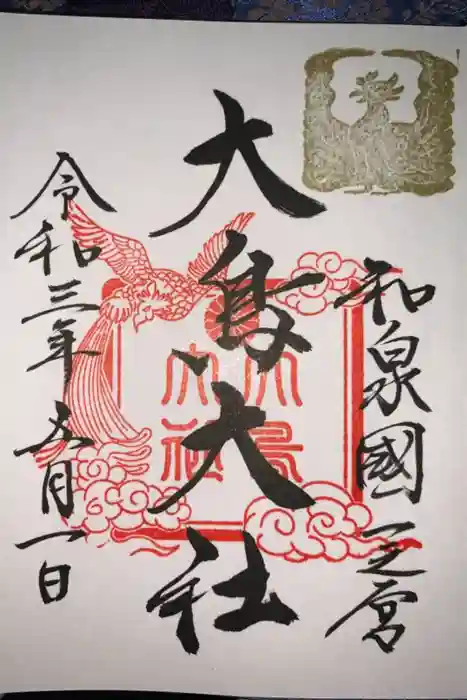 和泉國一之宮
大鳥大社
令和三年五月一日
大鳥大社